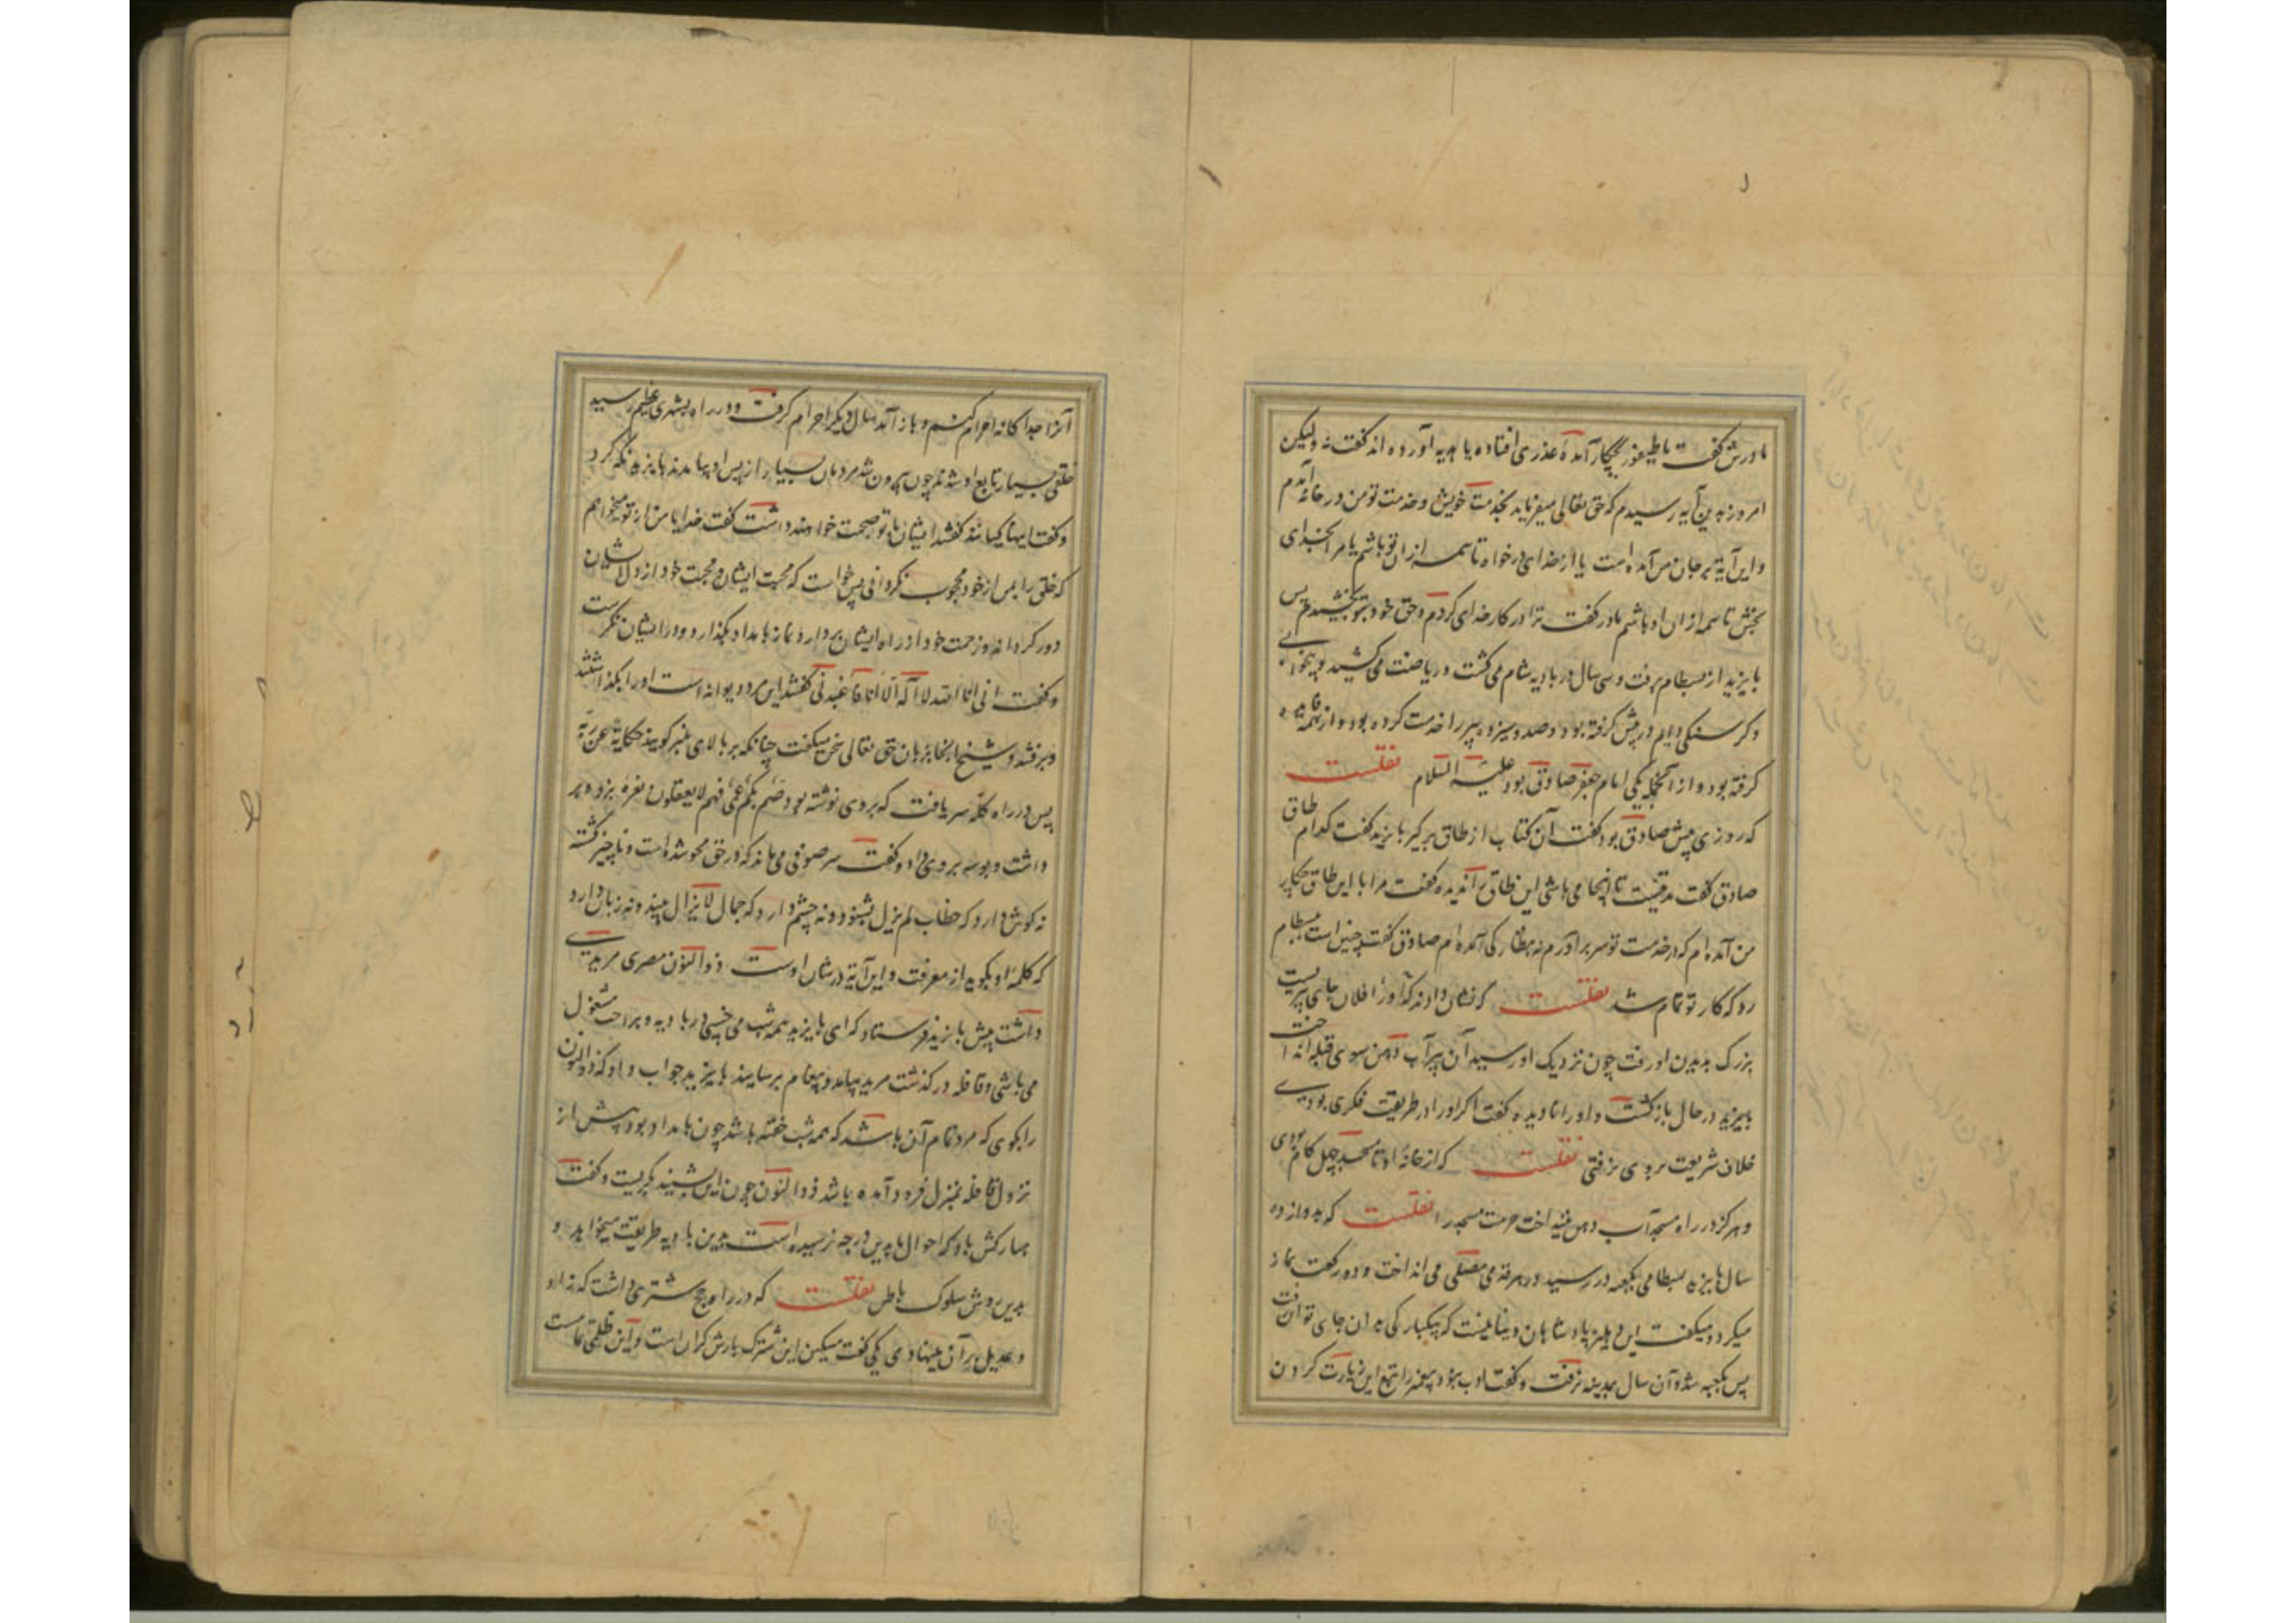 مادرش گفت یا طیفور بچکار آمدۀ عذری افتاده یا هدیه آورده اند گفت نه ولیکن
امروز بدین آیه رسیدم که حق تعالی میفرماید بخدمت خویش و خدمت تو من در خانۀ آمدم
و این آیة بر جان من آمده است یا از خدای درخواه تا همه از ان تو باشم یا مرا بخدای
بخش تا همه از ان او باشم مادر گفت ترا در کار خدای کردم و حق خود بتو بخشیدم پس
بایزید از بسطام برفت و سی سال در بادیه شام می گشت و ریاضت می کشید و بیخوابی
و کرسنکی دایم در پیش گرفته بود و صد و سیزده پیر را خدمت کرده بود و از همه فایده
گرفته بود و از آنجمله یکی امام جعفر صادق بود علیه السلام نقلست
که روزی پیش صادق بود گفت آن کتاب از طاق برگیر بایزید گفت کدام طاق
صادق گفت مدتیست تا اینجا می باشی این طاق را ندیده گفت مرا با این طاق چکار
من آمده ام که در خدمت تو سر برآورم نه بنظارگی آمده ام صادق گفت چنین است ببسطام
رو که کار تو تمام شد نقلست که نشان دادند که او را فلان جای پیریست
بزرک بدیدن او رفت چون نزدیک او رسید آن پیر آب دهن سوی قبله انداخت
بایزید در حال بازکشت و او را نادیده گفت اگر او را در طریقت فکری بودی
خلاف شریعت بر وی نرفتی نقلست که از خانۀ او تا مسجد چهل کام بودی
و هرکز در راه مسجد آب دهن نینداخت حرمت مسجد را نقلست که بدوازده
سال بایزید بسطامی بکعبه در رسید و در هر قدمی مصلی می انداخت و دو رکعت نماز
میکرد و میکفت این دهلیز پادشاهان دینا نیست که بیکبارکی بدان جای توان رفت
پس بکعبه شد و آن سال بمدینه نرفت و گفت ادب نبود پیغمبر را تبع این زیارت کردن
آنرا جداکانه احرام کنم و باز آمد سال دیکر احرام کرفت و در راه بشهری عظیم رسید
خلقی بسیار تابع او شدند چون بیرون شد مردمان بسیار از پس او بیامدند بایزید نکه کرد
و گفت اینها کیانند گفتند ایشان با تو صحبت خواهند داشت گفت خدایا من از تو میخواهم
که خلق را بمن از خود محجوب نکردانی پس خواست که محبت ایشان و محبت خود از دل ایشان
دور کرداند و زحمت خود از راه ایشان بردارد نماز بامداد بکذارد و در ایشان نکریست
و گفت انی انا الله لا اله الا انا فاعبدنی گفتند این مرد دیوانه است او را بکذاشتند
و برفتند و شیخ اینجا بزبان حق تعالی سخن میکفت چنانکه بر بالای منبر کویند حکایة عن ربه
پس در راه کلۀ سر یافت که بر وی نوشته بود صم بکم عمی فهم لا یعقلون نعره بزد و بر
داشت و بوسه بر وی داد و گفت سر صوفی می ماند که در حق محو شده است و ناچیز کشته
نه کوش دارد که خطاب لم یزل بشنود و نه چشم دارد که جمال لایزال بیند و نه زبان دارد
که کلمۀ او بکوید از معرفت و این آیة در شان اوست ذوالنون مصری مریدی
داشت پیش بایزید فرستاد که ای بایزید همه شب می خسبی در بادیه و براحت مشغول
می باشی و قافله در کذشت مرید بیامد و پیغام برسانید بایزید جواب داد که ذوالنون
را بکوی که مرد تمام آن باشد که همه شب خفته باشد چون بامداد بود پیش از
نزول قافله بمنزل فرود آمده باشد ذوالنون چون این بشنید بکریست و گفت
مبارکش باد که احوال ما بدین درجه نرسیده است بدین بادیه طریقت میخواهد و
بدین روش سلوک باطن نقلست که در راه حج شتری داشت که زاد
و عدیل بر آن مینهادی یکی گفت مسکین این شترک بارش کران است و این ظلمی تمامست